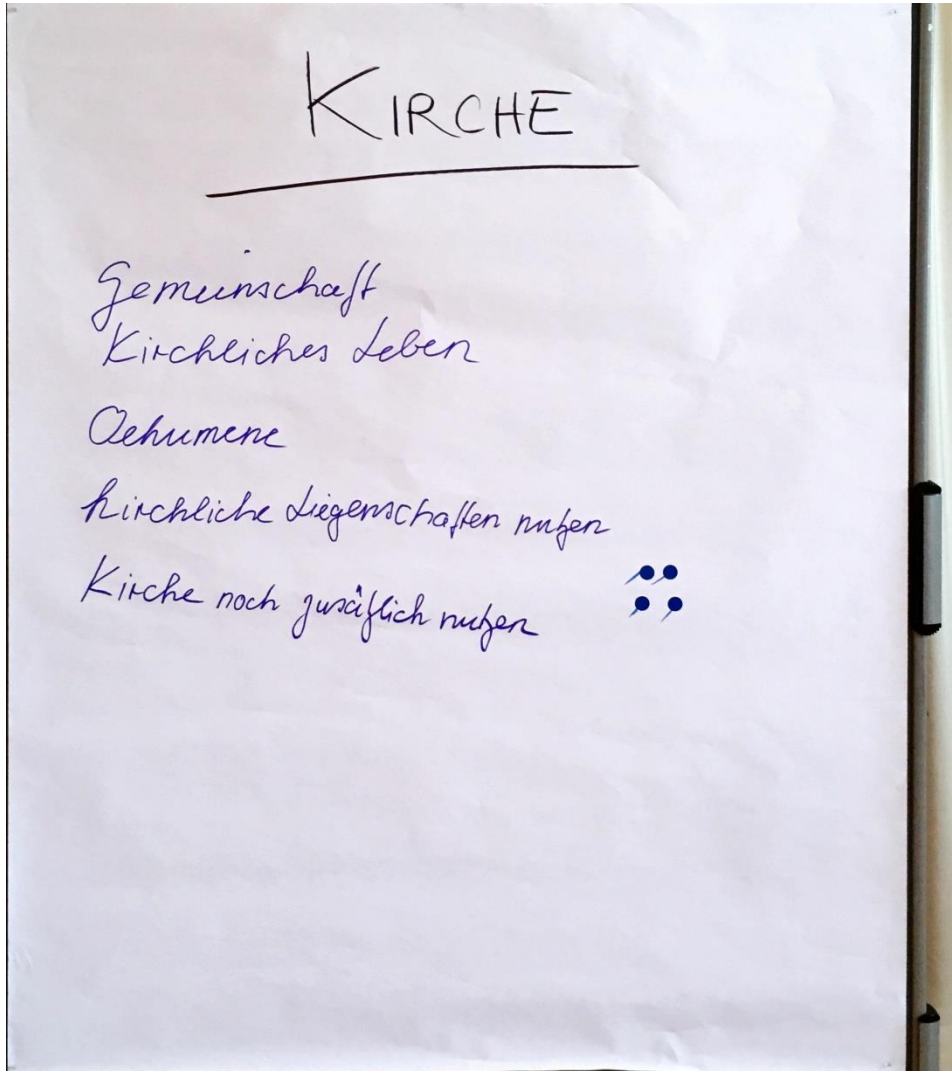 KIRCHE
Gemeinschaft
Kirchliches Leben
Oekumene
Kirchliche Liegenschaften nutzen
Kirche noch zusätzlich nutzen